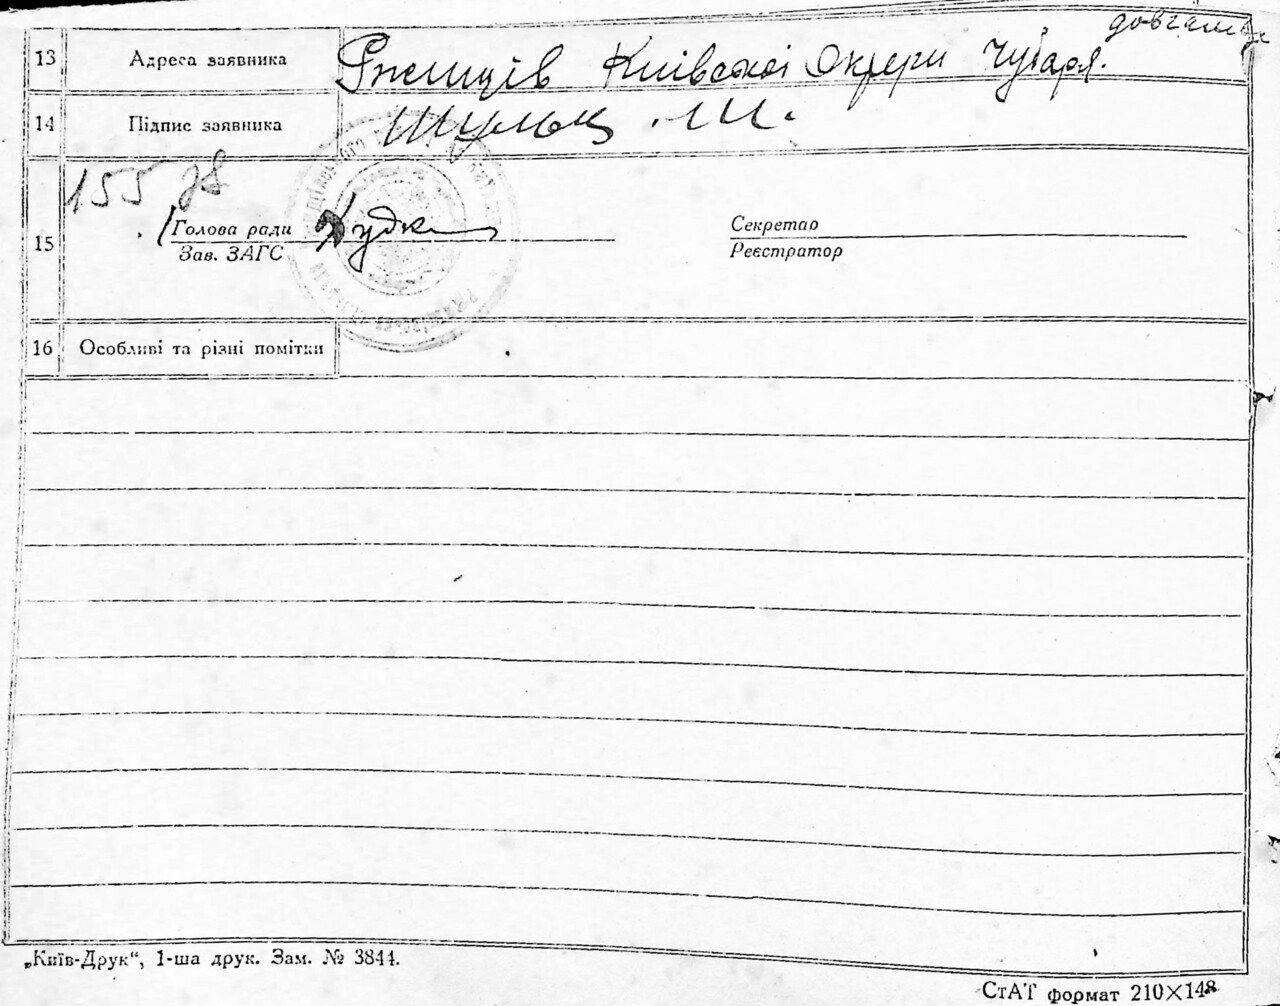 довгалівс
13 Адреса заявника Ржищів Київської Округи Чубаря.
14 Підпис заявника Шульц М.
155 78
15 Голова ради Худк Секретар
Зав. ЗАГС Реєстратор
16 Особливі та різні помітки
„Київ-Друк“, 1-ша друк. Зам. № 3844.
СтАТ формат 210×148